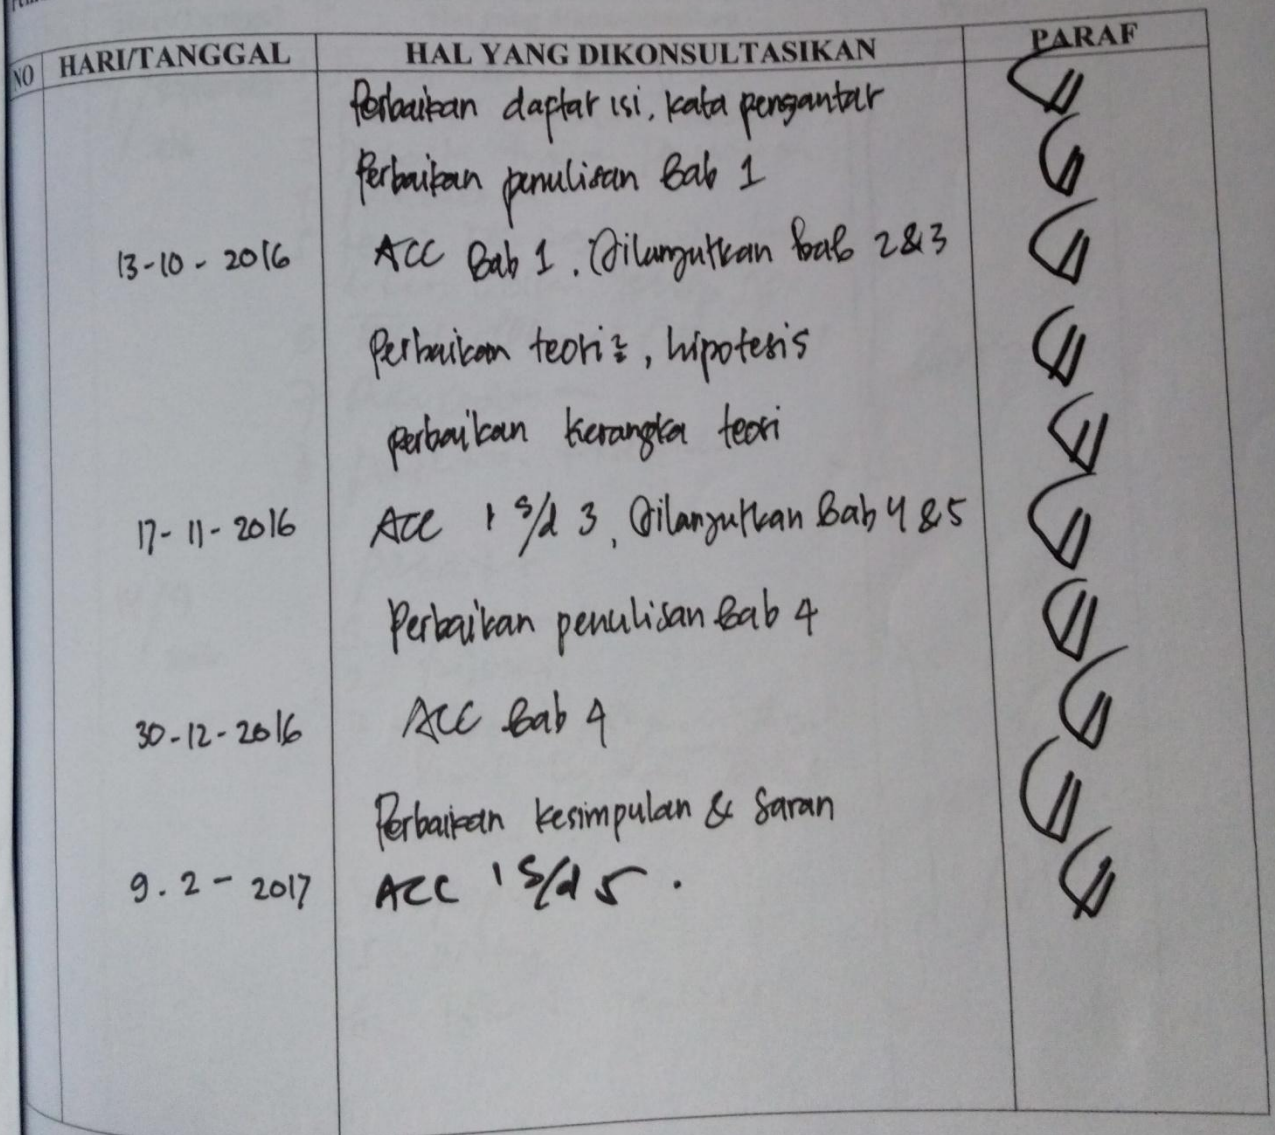 NO HARI/TANGGAL HAL YANG DIKONSULTASIKAN PARAF
Perbaikan daftar isi, kata pengantar
Perbaikan penulisan Bab 1
13-10-2016 ACC Bab 1. Dilanjutkan bab 2&3
Perbaikan teori2, hipotesis
perbaikan kerangka teori
17-11-2016 ACC 1 s/d 3, Dilanjutkan Bab 4 & 5
Perbaikan penulisan Bab 4
30-12-2016 ACC Bab 4
Perbaikan kesimpulan & Saran
9.2-2017 ACC 1 S/d 5.